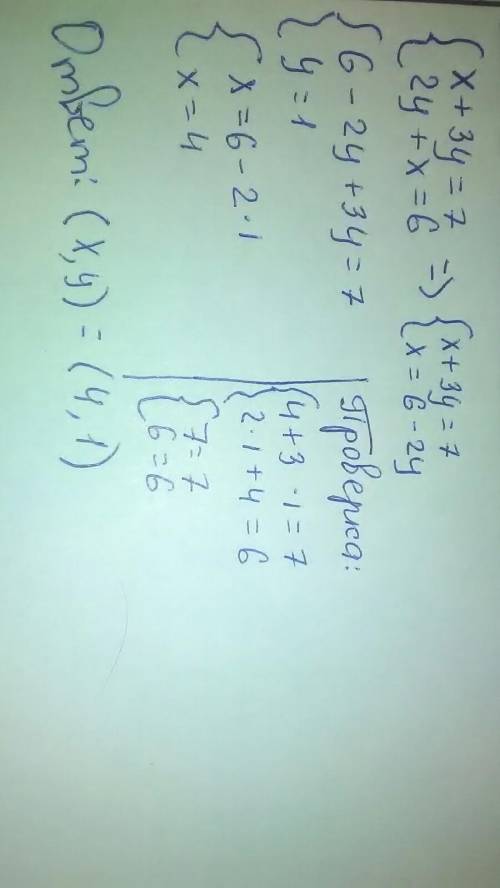 { x + 3y = 7
{ 2y + x = 6 => { x + 3y = 7
{ x = 6 - 2y
{ 6 - 2y + 3y = 7
{ y = 1
{ x = 6 - 2 · 1
{ x = 4
Проверка:
{ 4 + 3 · 1 = 7
{ 2 · 1 + 4 = 6
{ 7 = 7
{ 6 = 6
Ответ: (x, y) = (4, 1)